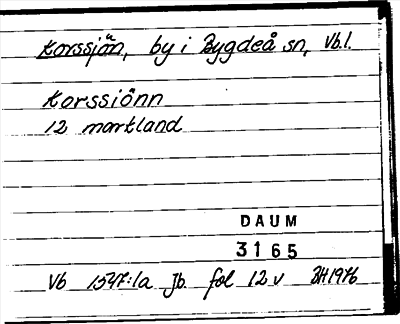 Korssjön, by i Bygdeå sn, Vb.l.
Korssiönn
12 markland
DAUM
3165
Vb 1547:1a Jb. fol 12v BH1976